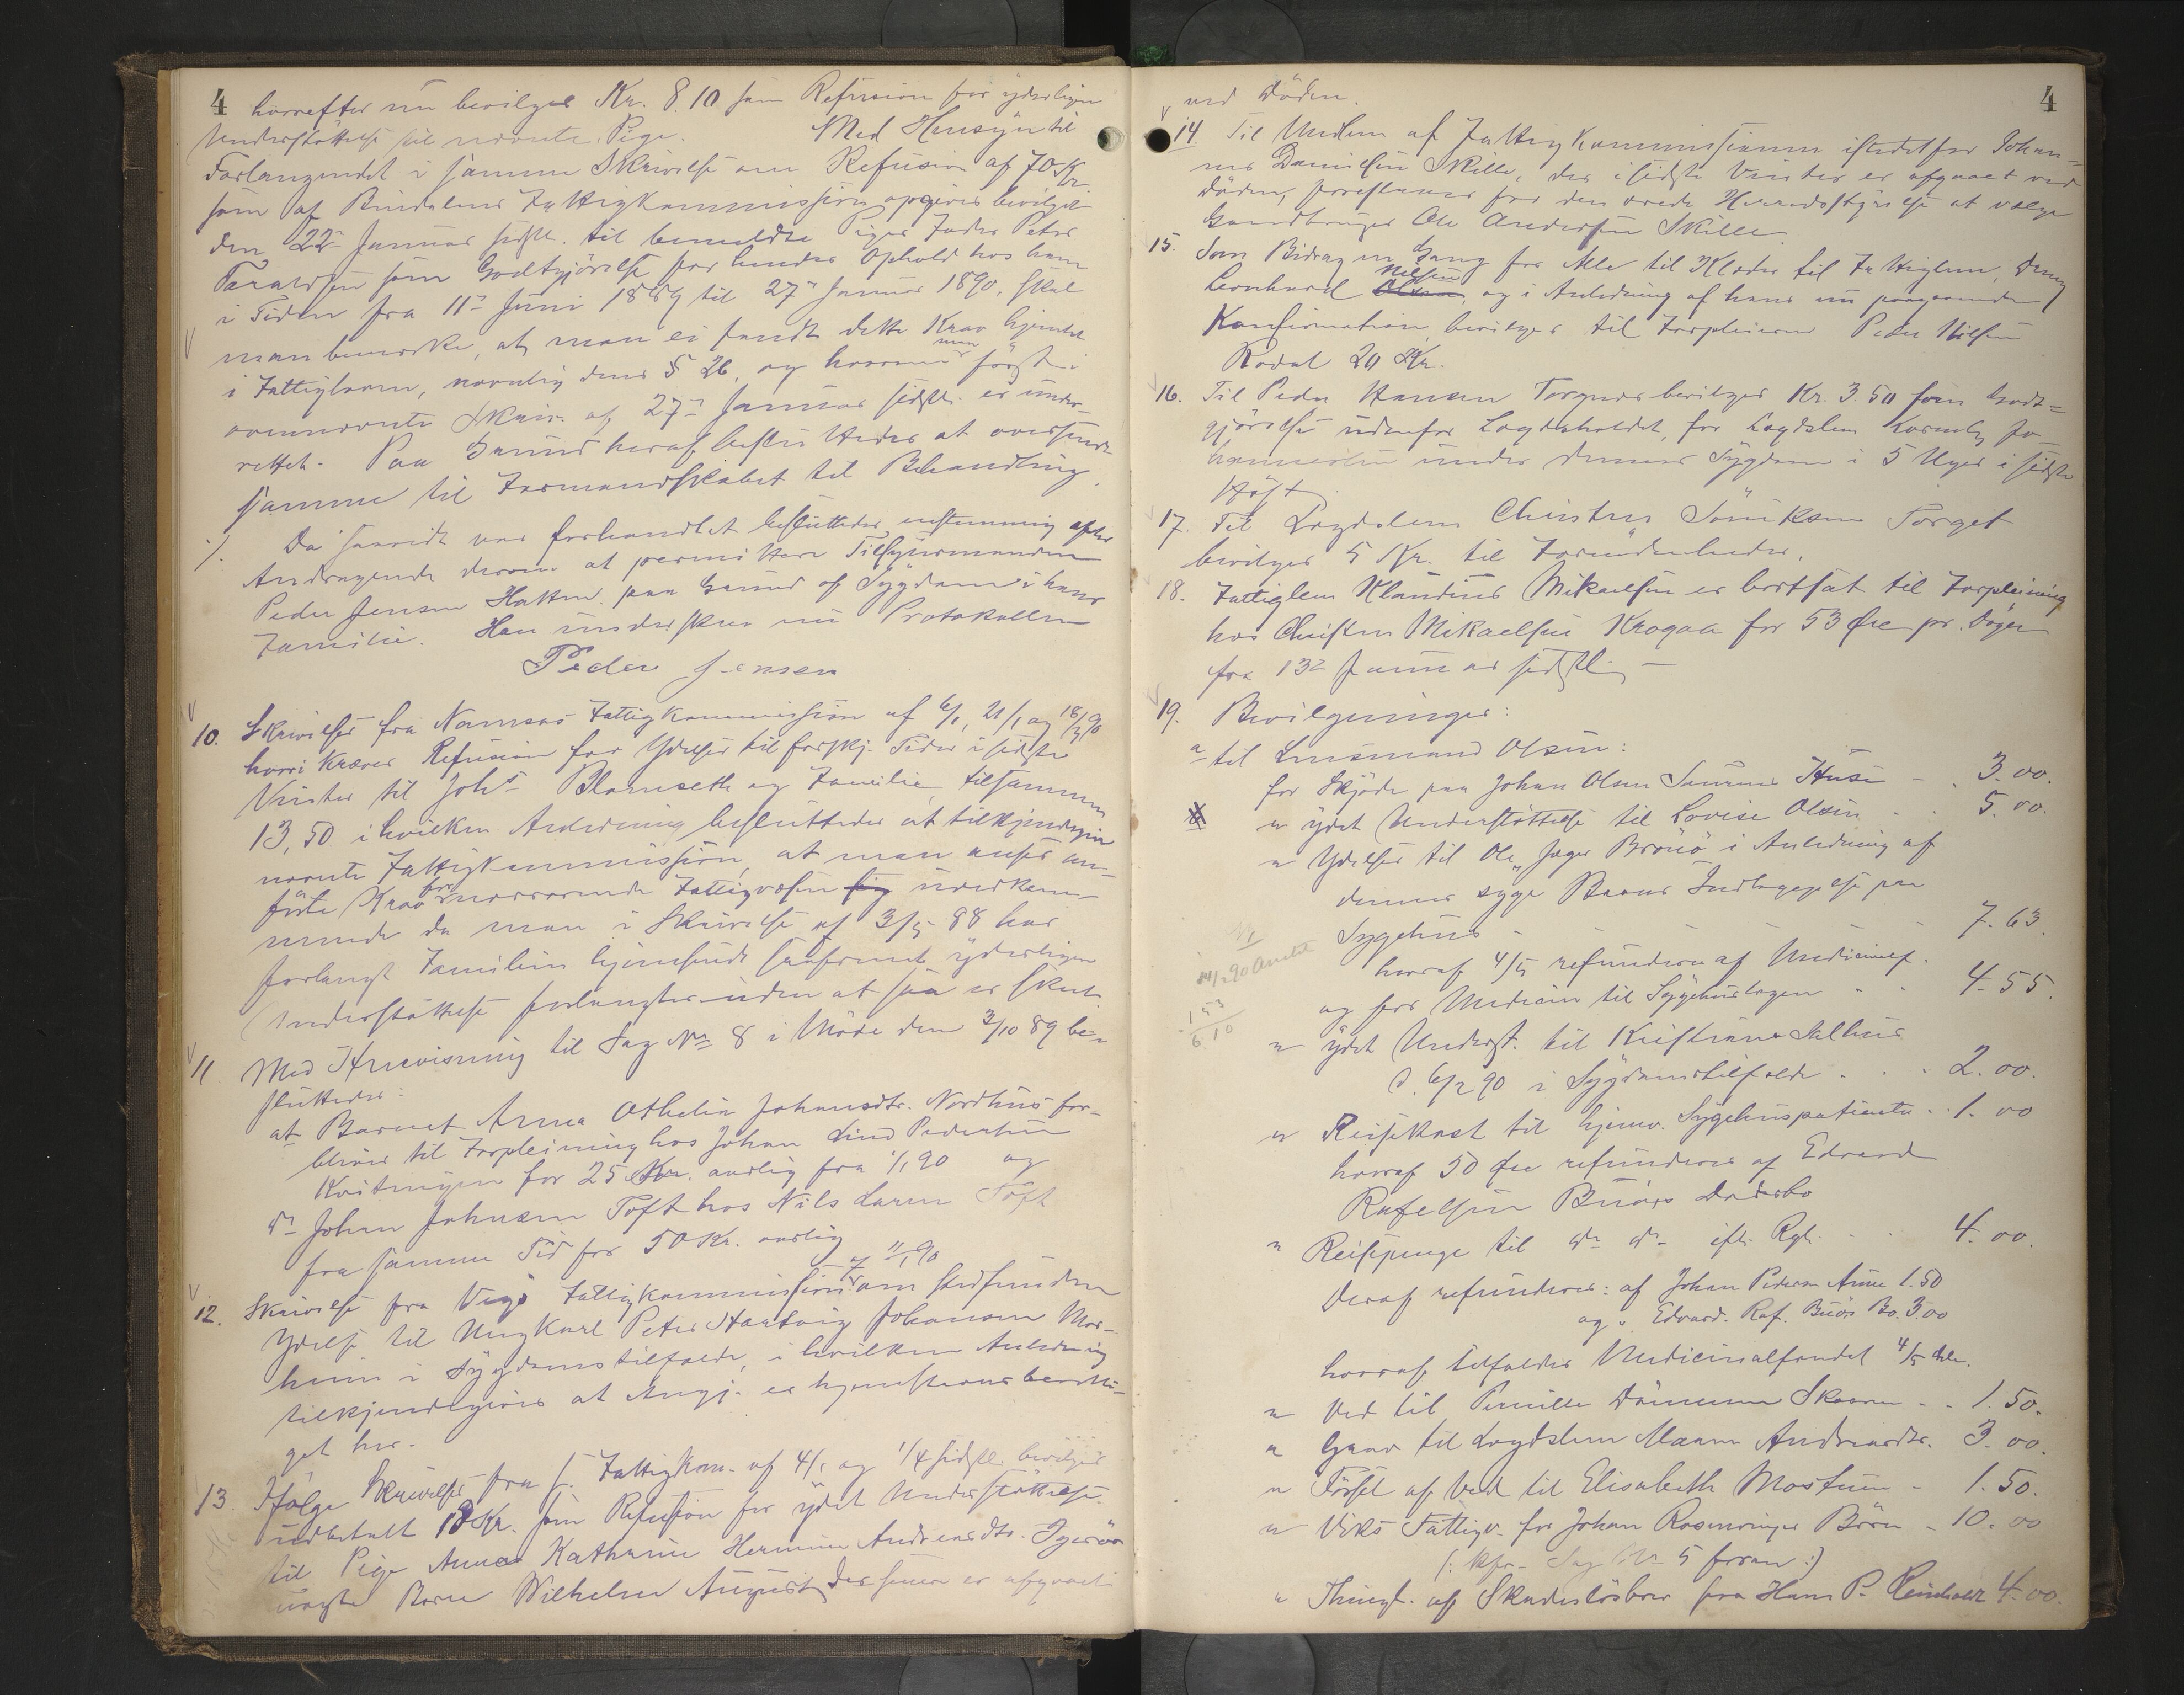 4
hvorefter nu bevilges Kr. 8.10 som Refusion for yderligere
Understøttelse til nævnte Pige. Med Hensyn til
Forlangendet i samme Skrivelse om Refusion af 70 Kr.
som af Bindalens Fattigkommission opgives bevilget
den 22de Januar sidstl. til bemeldte Piges Fader Peter
som Godtgjørelse for hendes Ophold hos ham
i Tiden fra 11te Juni 1889 til 27de Januar 1890, skal
man bemærke, at man ei fandt dette Krav hjemlet
i Fattigloven, navnlig dens § 26, og hvorom man først i
ovennævnte Skriv. af 27de Januar sidstl. er under-
rettet. Paa Grund heraf besluttedes at oversende
samme til Formandskabet til Behandling.
Da saavidt var forhandlet besluttedes enstemmig efter
Andragende derom at permittere Tilsynsmanden
Peder Jensen Hatten paa Grund af Sygdom i hans
Familie. Han underskrev nu Protokollen
Peder Jensen
10. Skrivelser fra Namsos Fattigkommission af 6/1, 21/1 og 18/3 90
hvori kræves Refusion for Ydelser til forskj. Tider i sidste
Vinter til Johs Blomseth og Familie, tilsammen
13,50. i hvilken Anledning besluttedes at tilkjendegive
nævnte Fattigkommission, at man anser an-
førte Krav for nærværende Fattigvæsen uvedkom-
mende da man i Skrivelse af 3/5 88 har
forlangt Familien hjemsendt saafremt yderligere
Understøttelse forlangtes uden at saa er skeet.
11 Med Henvisning til Sag No 8 i Møde den 3/10 89 be-
sluttedes:
at Barnet Anna Othelie Johansdtr. Nordhus for-
blives til Forpleining hos Johan Lind Pedersen
for 25 Kr. aarlig fra 1/1 90 og
do Johan Johnsen Toft hos Nils Larsen Toft
fra samme Tid for 50 Kr. aarlig
12. Skrivelse fra Vegø Fattigkommission af 11/1 90 om stedfunden
Ydelse til Ungkarl Peter Hartvig Johansen Mar-
heim i Sygdomstilfælde, i hvilken Anledning
tilkjendegives at Angj. er hjemstavnsberetti-
get her.
13. Ifølge Skrivelser fra s. Fattigkom. af 4/1 og 1/4 sidstl. bevilges
udbetalt 18 Kr. som Refusion for ydet Understøttelse
til Pige Anna Kathrine Hermine Andreasdtr.
uægte Barn Wilhelm August, der senere er afgaaet
4
ved Døden.
14. Til Medlem af Fattigkommissionen istedetfor Johan-
nes Danielsen Skille, der i sidste Vinter er afgaaet ved
Døden, foreslaaes for den ærede Herredsstyrelse at vælge
Gaardbruger Ole Andersen Skille.
15. Som Bidrag en Gang for Alle til Klæder til Fattiglem, Dreng
Leonhard Nilsen og i Anledning af hans nu paagaaende
Konfirmation bevilges til Forpleieren Peder Nilsen
Rodal 20 Kr.
16. Til Peder Hansen Torgnes bevilges Kr. 3.50 som Godt-
gjørelse udenfor Lægdsholdet, for Lægdslem Jo-
hannesen under dennes Sygdom i 5 Uger i sidste
Høst
17. Til Lægdslem Christen Sørriksen Torget
bevilges 5 Kr. til Fornødenheder.
18. Fattiglem Klaudius Mikaelsen er bortsat til Forpleining
hos Christen Mikaelsen Krogaa for 53 Øre pr. Døgn
fra 13de Januar sidstl.
19. Bevilgninger:
a til Lensmand Olsen:
for Skjøde paa Johan Olsen Hus - 3.00.
" ydet Understøttelse til Lovise Olsen - 5.00.
" Ydelser til Ole Jæger Brønø i Anledning af
dennes syge Barns Indlæggelse paa
Sygehus - 7.63.
hvoraf 4/5 refunderes af Medicinalf.
og for Medicin til Sygehuslægen - - 4.55.
" ydet Underst. til Kristiane
d. 6/2 90 i Sygdomstilfælde . . . 2.00.
" Reisekost til hjemv. Sygehuspatienter . . 1.00
hvoraf 50 Øre refunderes af Edvard
Rafelsen Buøys Dødsbo
" Reisepenge til do do eft. Rgl. - . 4.00.
Deraf refunderes: af Johan Pedersen 1.50
og " Edvard Raf. Buøs Bo. 3.00
hvoraf tilfalder Medicinalfondet 4/5 dele.
" Ved til Pernille Skaaren - - 1.50.
" Grav til Lægdslem Maren Andreasdtr. 3.00.
" Førsel af Ved til Elisabeth Mosheim - 1.50.
" Viks Fattigv. for Johan Rosenvinges Børn - 10.00
(: kfr. Sag No 5 foran :)
" Thingl. af Skadesløsbrev fra Hans P. 4.00.